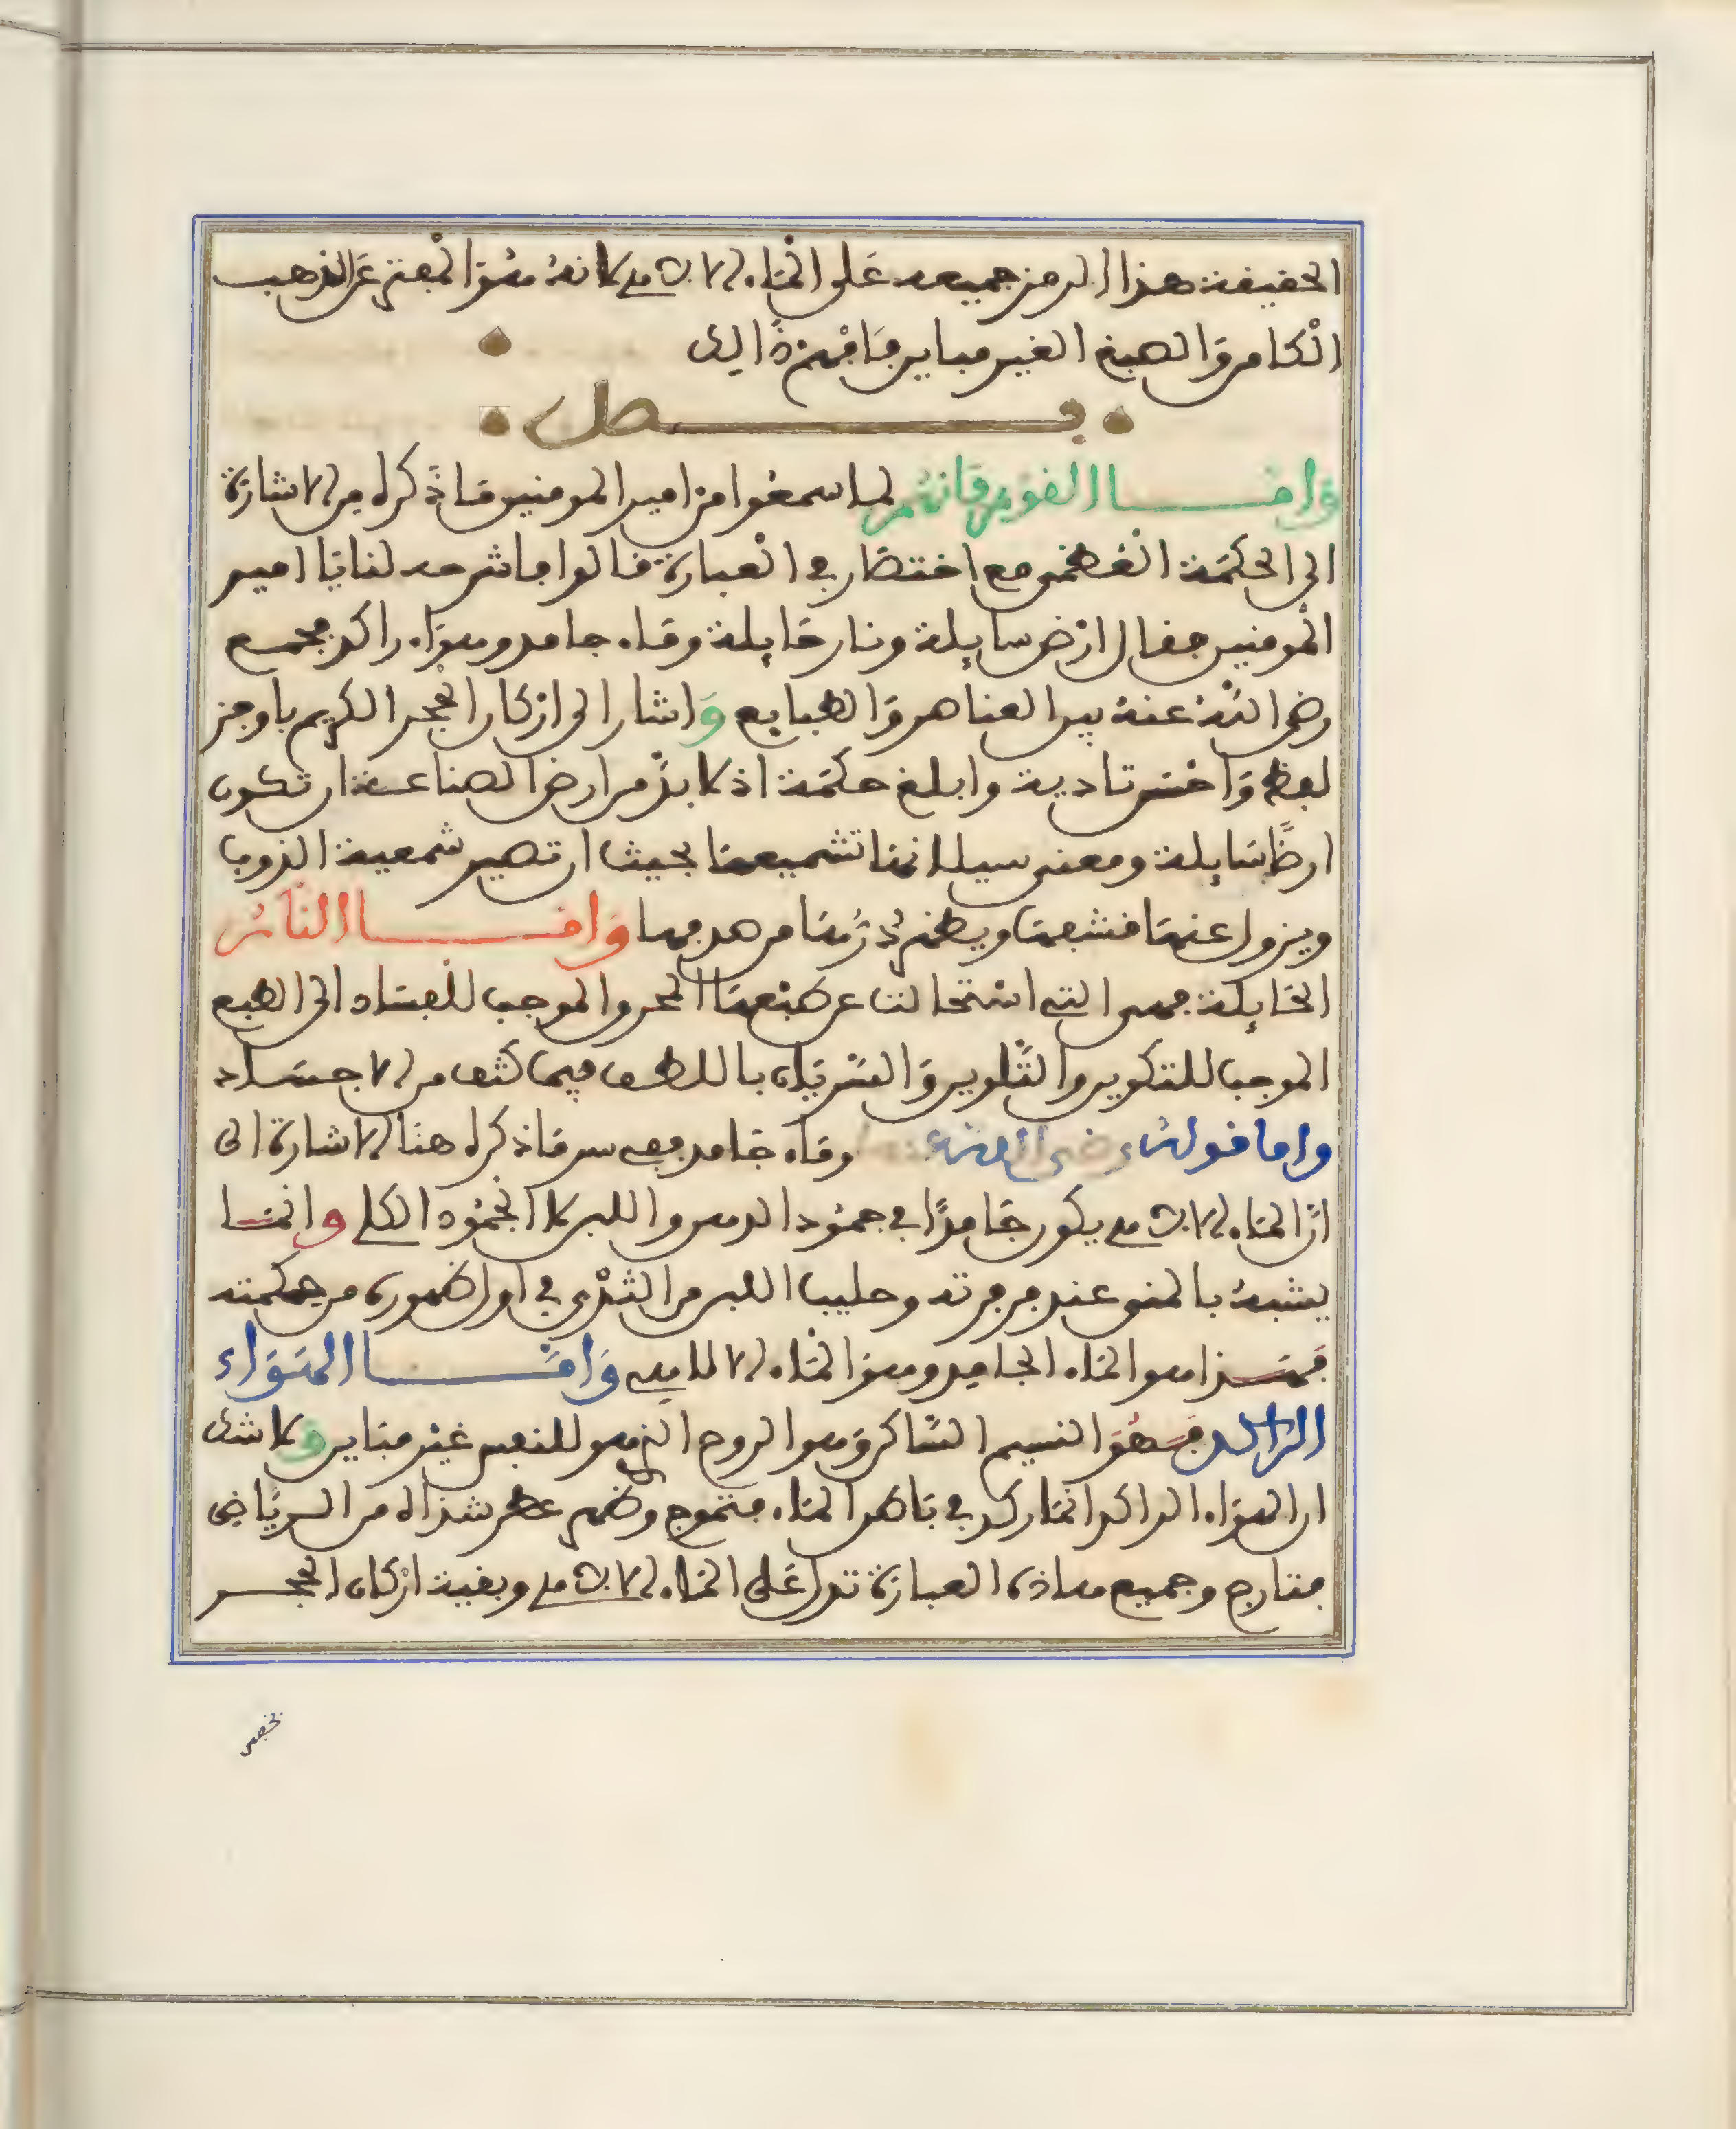 الحقيقة هذا الرمز جميعه على الماء الالاهي لانه هو المفتر عن الذهب
الكامن والصبغ الغير مباين فافهم ذالك
فصل
واما القوم فانهم لما سمعوا من امير المومنين ما ذكره من الاشارة
الى الحكمة العظمى مع اختصار في العبارة قالوا ما شرحه لنا يا امير
المومنين فقال ارض سايلة ونار حايلة وماء جامد وهواء راكد فجمع
رضي الله عنه بين العناصر والطبايع واشار الى اركان الحجر الكريم باوجز
لفظ واحسن تادية وابلغ حكمة اذ لا بد من ارض الصناعة ان تكون
ارضا سايلة ومعنى سيلانها تشميعها بحيث ان تصير شمعية الذوب
ويزول عنها قشبها ويظهر دهنها من هدمها واما النار
الحايلة فهي التي استحالت عن طبعها المحرو الموجب للفساد الى الطبع
الموجب للتكوين والتلوين والسريان باللطف فيما كثف من الاجساد
واما قوله رضي الله عنه وماء جامد ففي سر ما ذكره هنا الاشارة الى
ان الماء الالاهي يكون جامدا في جمود الدهن واللبن لا الجمود الكلي وانما
يشبه بالمنو عند مرمرته وحليب اللبن من الثدي في اول ظهوره من حكمته
فهذا هو الماء الجامد وهو الماء الالاهي واما الهواء
الراكد فهو النسيم الساكن وهو الروح الذي هو للنفس غير مباين ولا شك
ان الهواء الراكد انما ركد في باطن الماء فتموج وظهر عطر شذاه من الرياض
فتارج وجميع هاذه العبارة تدل على الماء الالاهي وبقية اركان الحجر